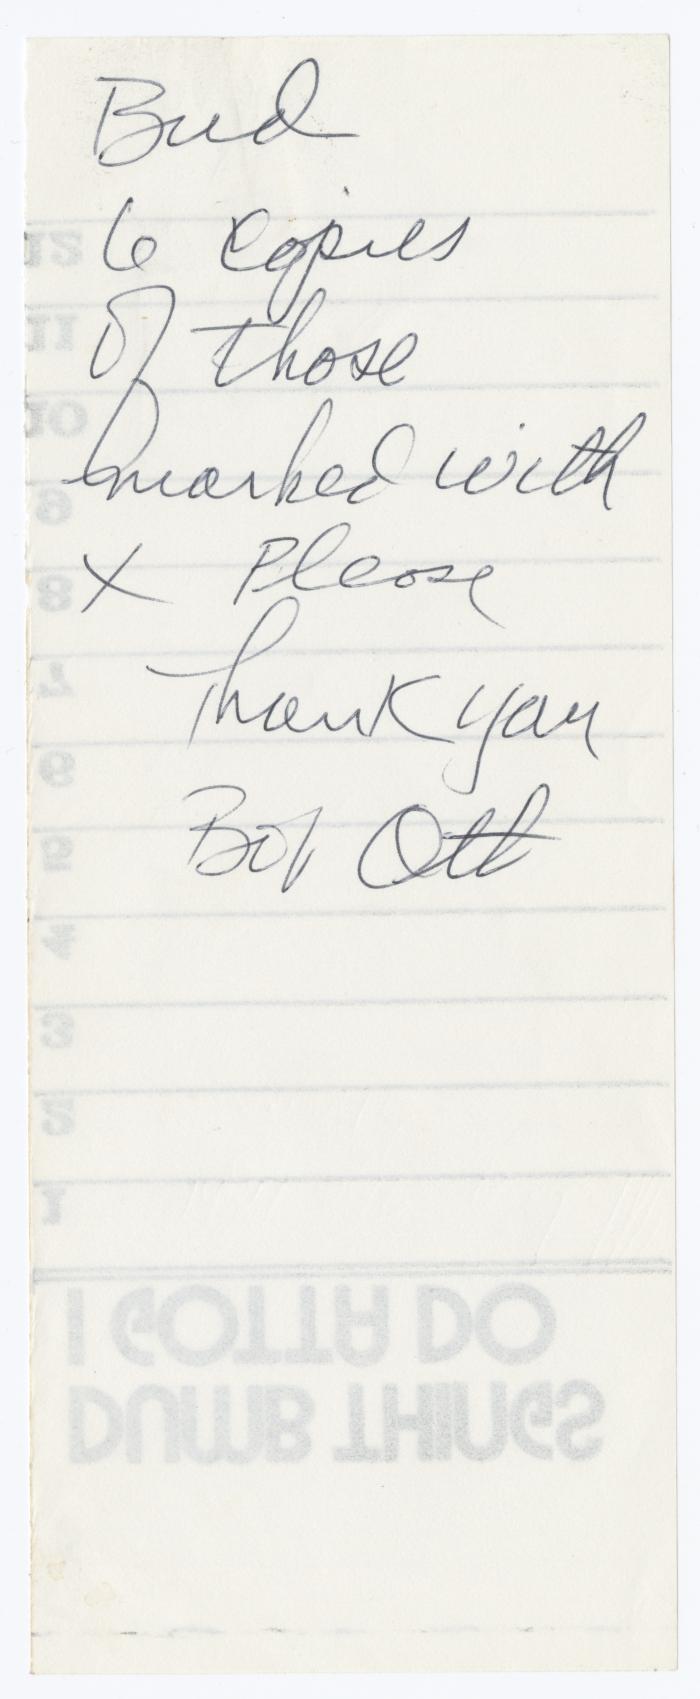 Bud
6 copies
of those
marked with
x Please
Thank you
Bob Ott
12
11
10
9
8
7
6
5
4
3
2
1
I GOTTA DO
DUMB THINGS